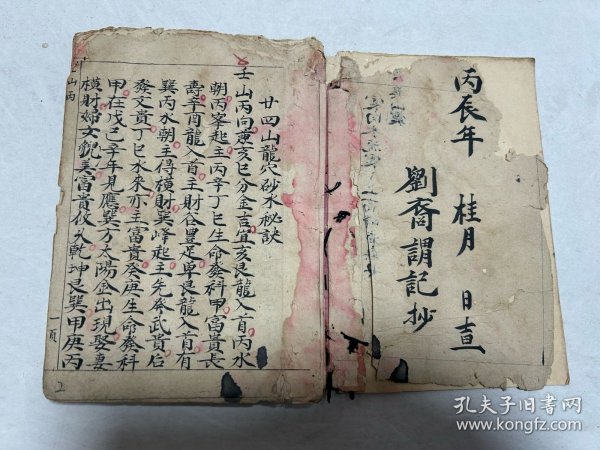 丙辰年 桂月 日直
劉裔謂記抄
廿四山龍穴砂水秘訣
壬山丙向兼亥巳分金吉宜亥艮龍入首丙水
朝丙峯起主丙辛丁巳生命發科甲富貴長
壽辛酉龍入首主財谷豐足卑艮龍入首有
巽丙水朝主得橫財巽峰起主先參武貴后
發文貴丁巳水來亦主富貴癸庚生命發科
甲在戊己辛年見應巽方太陽金出現娶妻
橫財婦女貌美富貴攸久乾坤艮巽甲庚丙
壬山丙
一頁
孔夫子旧书网
www.kongfz.com